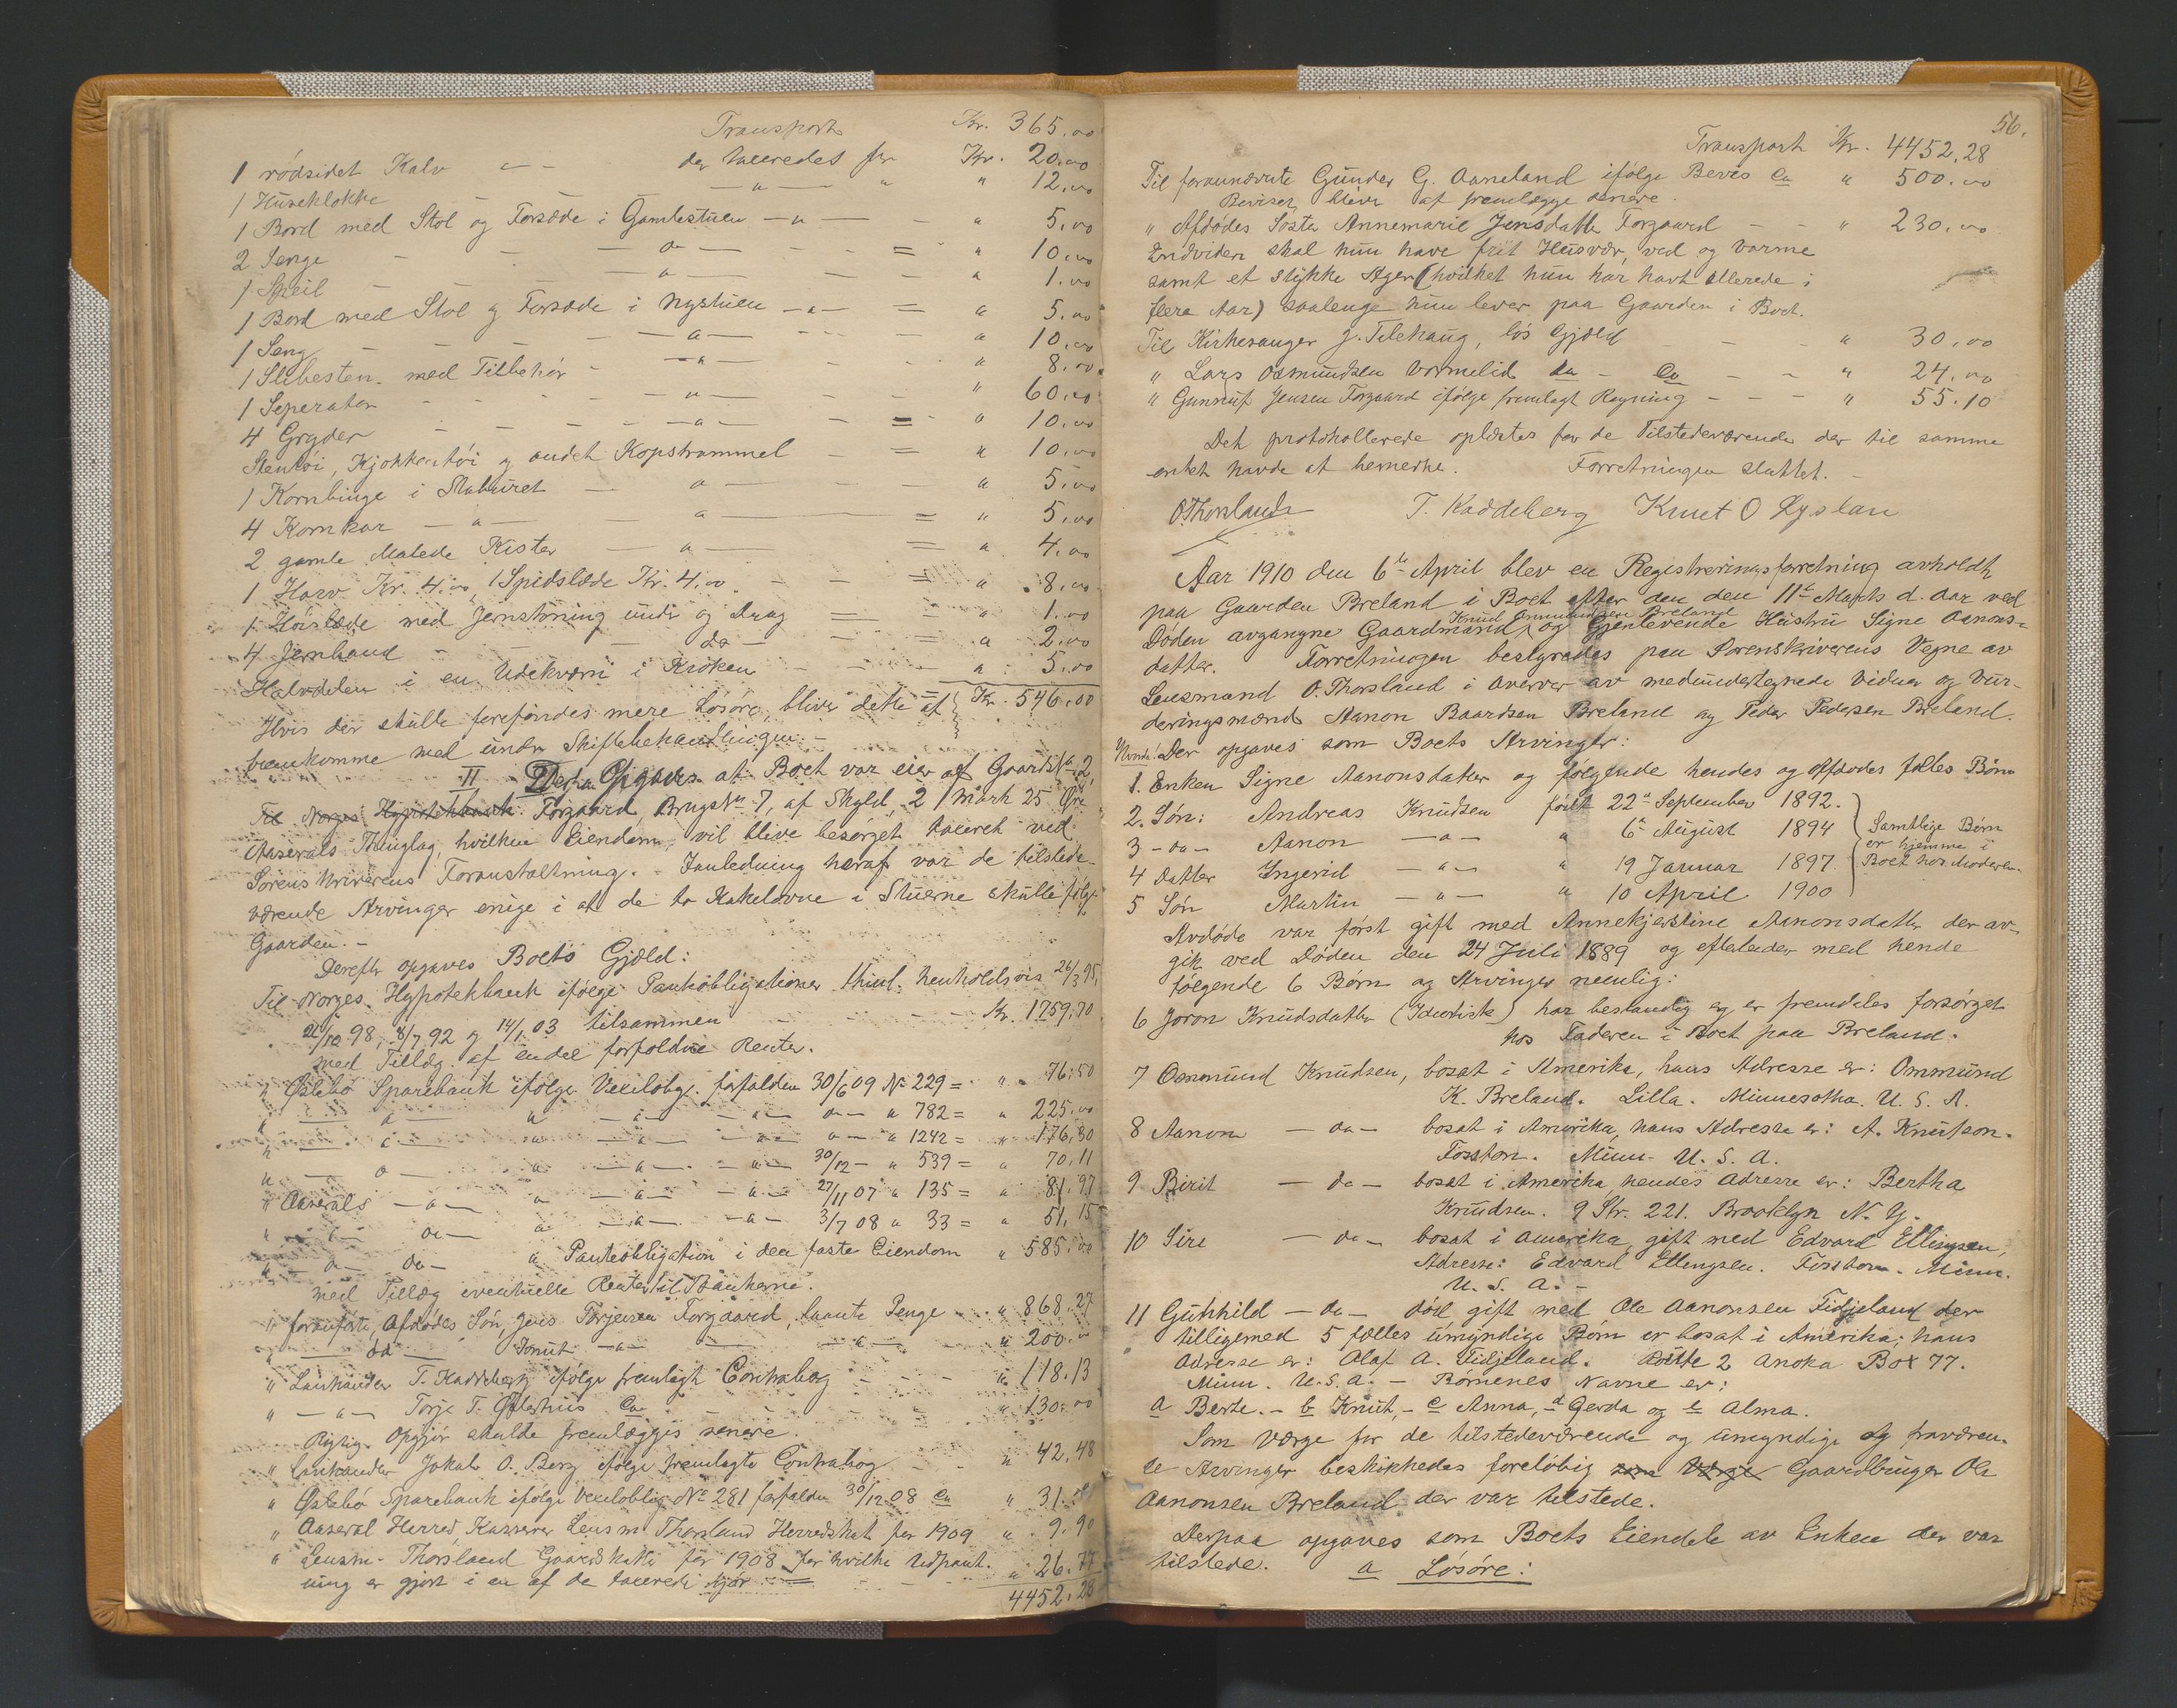 Transport Kr. 365.00
1 rödsidet Kalv — — der taxeredes for Kr. 20.00
1 Huseklokke — " — " " 12.00
1 Bord med Stol og Forsæde i Gamlestuen — " — " 5.00
2 Senge — — — " — = " 10.00
1 Speil — " — — " 1.00
1 Bord med Stol og Forsæde i Nystuen — " — = " 5.00
1 Seng — — — " — " 10.00
1 Slibesten med Tilbehör — " — " 8.00
1 Seperator — — — " — " 60.00
4 Gryder — — — " — = " 10.00
Stentöi, Kjökkentöi og andet Kopstrammel — = " 10.00
1 Kornbinge i Staburet — " — " 5.00
4 Kornkar — " — — " — = " 5.00
2 gamle Malede Kister — " — = " 4.00
1 Harv Kr. 4.00, 1 Spidslæde Kr. 4.00 — = " 8.00
1 Höislæde med Jernskoning under og Drag = — " 1.00
4 Jernbaand — — do — = " 2.00
Halvdelen i en Udekværn i Kröken — — " 5.00
Hvis der skulde forefindes mere Lösöre, bliver dette at Kr. 546.00
fremkomme med under Skiftebehandlingen. —
II Der Opgaves at Boet var eier af Gaards No 2,
Til Norges Hypotekbank Forgaard, Brugs No 7, af Skyld 2 Mark 25 Øre
Aaserals Thinglag, hvilken Eiendom vil blive besörget taxeret ved
Sorenskriverens Foranstaltning. I anledning heraf var de tilstede-
værende Arvinger enige i at de to Kakelovne i Stuerne skulle følge
Gaarden. —
Derefter opgaves Boets Gjæld:
Til Norges Hypotekbank ifölge Pantobligationer thinl. henholdsvis 26/3 95,
26/10 98, 8/7 92 og 14/1 03 tilsammen — — Kr. 1759.70
med Tillæg af endel forfaldne Renter.
" Øslebö Sparebank ifölge Vexelobg. forfalden 30/6 09 No 229 = " 76.50
" — " — " — " — — " — " — " 782 = " 225.00
" — " — " — " — — " — " — " 1242 = " 176.80
" — " — " — " — — " — 30/12 — " 539 = " 70.11
" Aaserals — " — " — " — — " — 27/11 07 " 135 = " 81.97
" — " — " — " — " — — " — 3/7 08 " 33 = " 51.15
" — " — do — " Pantobligation i den faste Eiendom " 585.00
med Tillæg eventuelle Renter til Bankerne.
" foranförte, Afdödes Sön, Jens Torjusen Forgaard, laante Penge — " 868.27
" — do — Knut — " — — " — " 200.00
" Lanhandler T. Kaddeberg ifölge fremlagt Contrabog — — " 118.13
" — " — Torje T. Øslehus do — — " 130.00
Rigtig Opgjör skulde fremlægges senere.
" Lanhandler Jakob O. Berg ifölge fremlagte Contrabog — — " 42.48
" Øslebö Sparebank ifölge Vexeloblig. No 281 forfalden 30/12 08 ca " 31.00
" Aaseral Herred Kasserer Lensm. Thorsland Herredskat for 1909 " 9.90
" Lensm. Thorsland Gaardskatte for 1908 for hvilke Udpant-
ning er gjort i en af de taxerede Kjör — = — — " 26.77
4452.28
56.
Transport Kr. 4452.28
Til forannævnte Gunder G. Aaneland ifölge Bevis ca " 500.00
Beviset bliver at fremlægge senere.
" Afdödes Söster Annemarie Jensdatter Forgaard — — " 230.00
Endvidere skal hun have frit Husvær, ved og varme
samt et stykke Ager (hvilket hun har havt allerede i
flere Aar) saalenge hun lever paa Gaarden i Boet.
Til Kirkesanger J. Tilehaug, lös Gjæld — — — " 30.00
" Lars Osmundsen Vormelid do — Co — — " 24.00
" Gunnuf Jensen Forgaard ifölge fremlagt Regning — — — " 55.10
Det protokollerede oplæstes for de Tilstedeværende der til samme
intet havde at bemerke. Forretningen sluttet. —
O. Thorsland T. Kaddeberg Knut O Lystan
Aar 1910 den 6te April blev en Registreringsforretning avholdt
paa Gaarden Breland i Boet efter den den 11te Marts d. Aar ved
Knud Aanundsen Breland
Döden avgangne Gaardmand og Gjenlevende Hustru Signe Aanons-
datter. Forretningen bestyredes paa Sorenskriverens Vegne av
Lensmand O. Thorsland i Overvær av medundertegnede Vidner og Vur-
deringsmænd Aanon Baardsen Breland og Peder Pedersen Breland.
Der opgaves som Boets Arvinger:
1. Enken Signe Aanonsdatter og følgende hendes og Afdödes fælles Børn
2. Sön: Andreas Knudsen født 22de September 1892.
3 — do — Aanon — " — " 6te August 1894
4 Datter Ingerid — " — " 19 Januar 1897.
5 Sön Martin — " — " 10 April 1900
Samtlige Børn
er hjemme i
Boet hos Moderen.
Avdöde var først gift med Annekjerstine Aanonsdatter der av-
gik ved Döden den 24 Juli 1889 og efterleder med hende
følgende 6 Børn og Arvinger nemlig:
6 Joron Knudsdatter (Idiotisk) har bestandig og er fremdeles forsörget
hos Faderen i Boet paa Breland.
7 Osmund Knudsen, bosat i Amerika, hans Adresse er: Ommund
K. Breland. Lilla. Minnesotha. U. S. A.
8 Aanon — do — bosat i Amerika, hans Adresse er: A. Knutson.
Fosston. Minn. U. S. A.
9 Birit — do — bosat i Amerika, hendes Adresse er: Bertha
Knudsen. 9 Str. 221. Brooklyn N. Y.
10 Sire — do — bosat i Amerika, gift med Edvard Ellingsen,
Adresse: Edvard Ellengsen. Fosston. Minn.
U. S. A. —
11 Gunhild — do — död, gift med Ole Aanonsen Fidjeland der
tilligemed 5 fælles umyndige Børn er bosat i Amerika; hans
Adresse er: Olaf A. Fidjeland. Route 2 Anoka Box 77.
Minn. U. S. A. — Børnenes Navne er:
a Berte. — b Knut, — c Anna, — d Gerda og e Alma.
Som Værge for de tilstedeværende og umyndige og fraværen-
de Arvinger beskikkedes foreløbig som Værge Gaardbruger Ole
Aanonsen Breland der var tilstede.
Derpaa opgaves som Boets Eiendele av Enken der var
tilstede. a Lösöre: